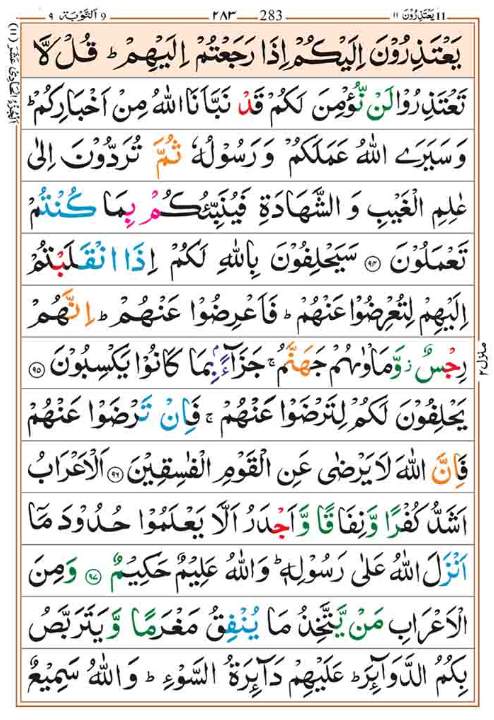 التوبة ٩ 9 ٢٨٣ 283 يعتذرون ١١ 11
الجزء الحادي عشر (١١)
يَعْتَذِرُوْنَ اِلَيْكُمْ اِذَا رَجَعْتُمْ اِلَيْهِمْ ؕ قُلْ لَّا
تَعْتَذِرُوْا لَنْ نُّؤْمِنَ لَكُمْ قَدْ نَبَّاَنَا اللّٰهُ مِنْ اَخْبَارِكُمْ ؕ
وَ سَيَرَى اللّٰهُ عَمَلَكُمْ وَ رَسُوْلُهٗ ثُمَّ تُرَدُّوْنَ اِلٰى
عٰلِمِ الْغَيْبِ وَ الشَّهَادَةِ فَيُنَبِّئُكُمْ بِمَا كُنْتُمْ
تَعْمَلُوْنَ ۝۹۴ سَيَحْلِفُوْنَ بِاللّٰهِ لَكُمْ اِذَا انْقَلَبْتُمْ
اِلَيْهِمْ لِتُعْرِضُوْا عَنْهُمْ ؕ فَاَعْرِضُوْا عَنْهُمْ ؕ اِنَّهُمْ
رِجْسٌ ز وَّ مَاْوٰىهُمْ جَهَنَّمُ ۚ جَزَآءًۢ بِمَا كَانُوْا يَكْسِبُوْنَ ۝۹۵
يَحْلِفُوْنَ لَكُمْ لِتَرْضَوْا عَنْهُمْ ۚ فَاِنْ تَرْضَوْا عَنْهُمْ
فَاِنَّ اللّٰهَ لَا يَرْضٰى عَنِ الْقَوْمِ الْفٰسِقِيْنَ ۝۹۶ اَلْاَعْرَابُ
اَشَدُّ كُفْرًا وَّ نِفَاقًا وَّ اَجْدَرُ اَلَّا يَعْلَمُوْا حُدُوْدَ مَاۤ
اَنْزَلَ اللّٰهُ عَلٰى رَسُوْلِهٖ ؕ وَ اللّٰهُ عَلِيْمٌ حَكِيْمٌ ۝۹۷ وَ مِنَ
الْاَعْرَابِ مَنْ يَّتَّخِذُ مَا يُنْفِقُ مَغْرَمًا وَّ يَتَرَبَّصُ
بِكُمُ الدَّوَآئِرَ ؕ عَلَيْهِمْ دَآئِرَةُ السَّوْءِ ؕ وَ اللّٰهُ سَمِيْعٌ
منزل ٢